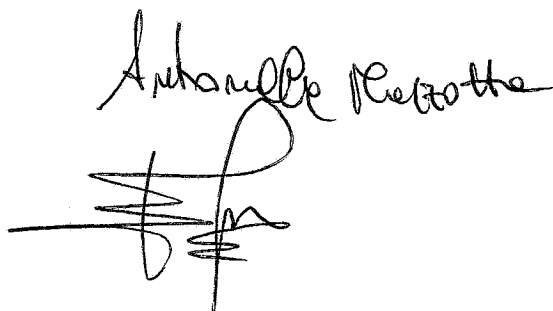 Antonella Mazzotta